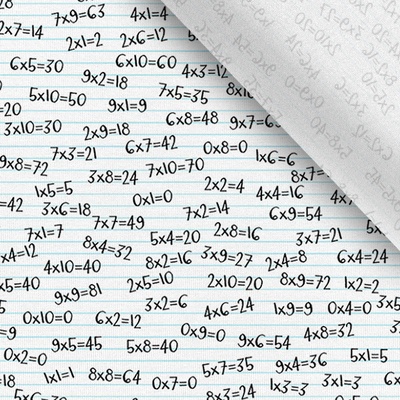 7x9=63 4x1=4
2x7=14 2x1=2 2x6=12
6x5=30 6x10=60 4x3=12
9x2=18
5x10=50 9x1=9 7x5=35
3x10=30 2x9=18 6x8=48 9x7=63
9x8=72 7x3=21 6x7=42 0x8=0 1x6=6
3x8=24 7x10=70
1x5=5 0x1=0 2x2=4 4x4=16
3x6=18 7x7=49 7x2=14 6x9=54
7x1=7 8x4=32 5x4=20 2x8=16 7x3=21
4x10=40 8x2=16 3x9=27 2x4=8 6x4=24
9x9=81 2x5=10 2x10=20 8x9=72 1x2=2
3x2=6 4x6=24 1x9=9 0x4=0
0x10=0 6x2=12 0x9=0 4x8=32
9x5=45 5x8=40 9x6=54
0x2=0 5x7=35 9x4=36 5x1=5
1x1=1 8x8=64 0x7=0 1x3=3 3x1=3
8x3=24